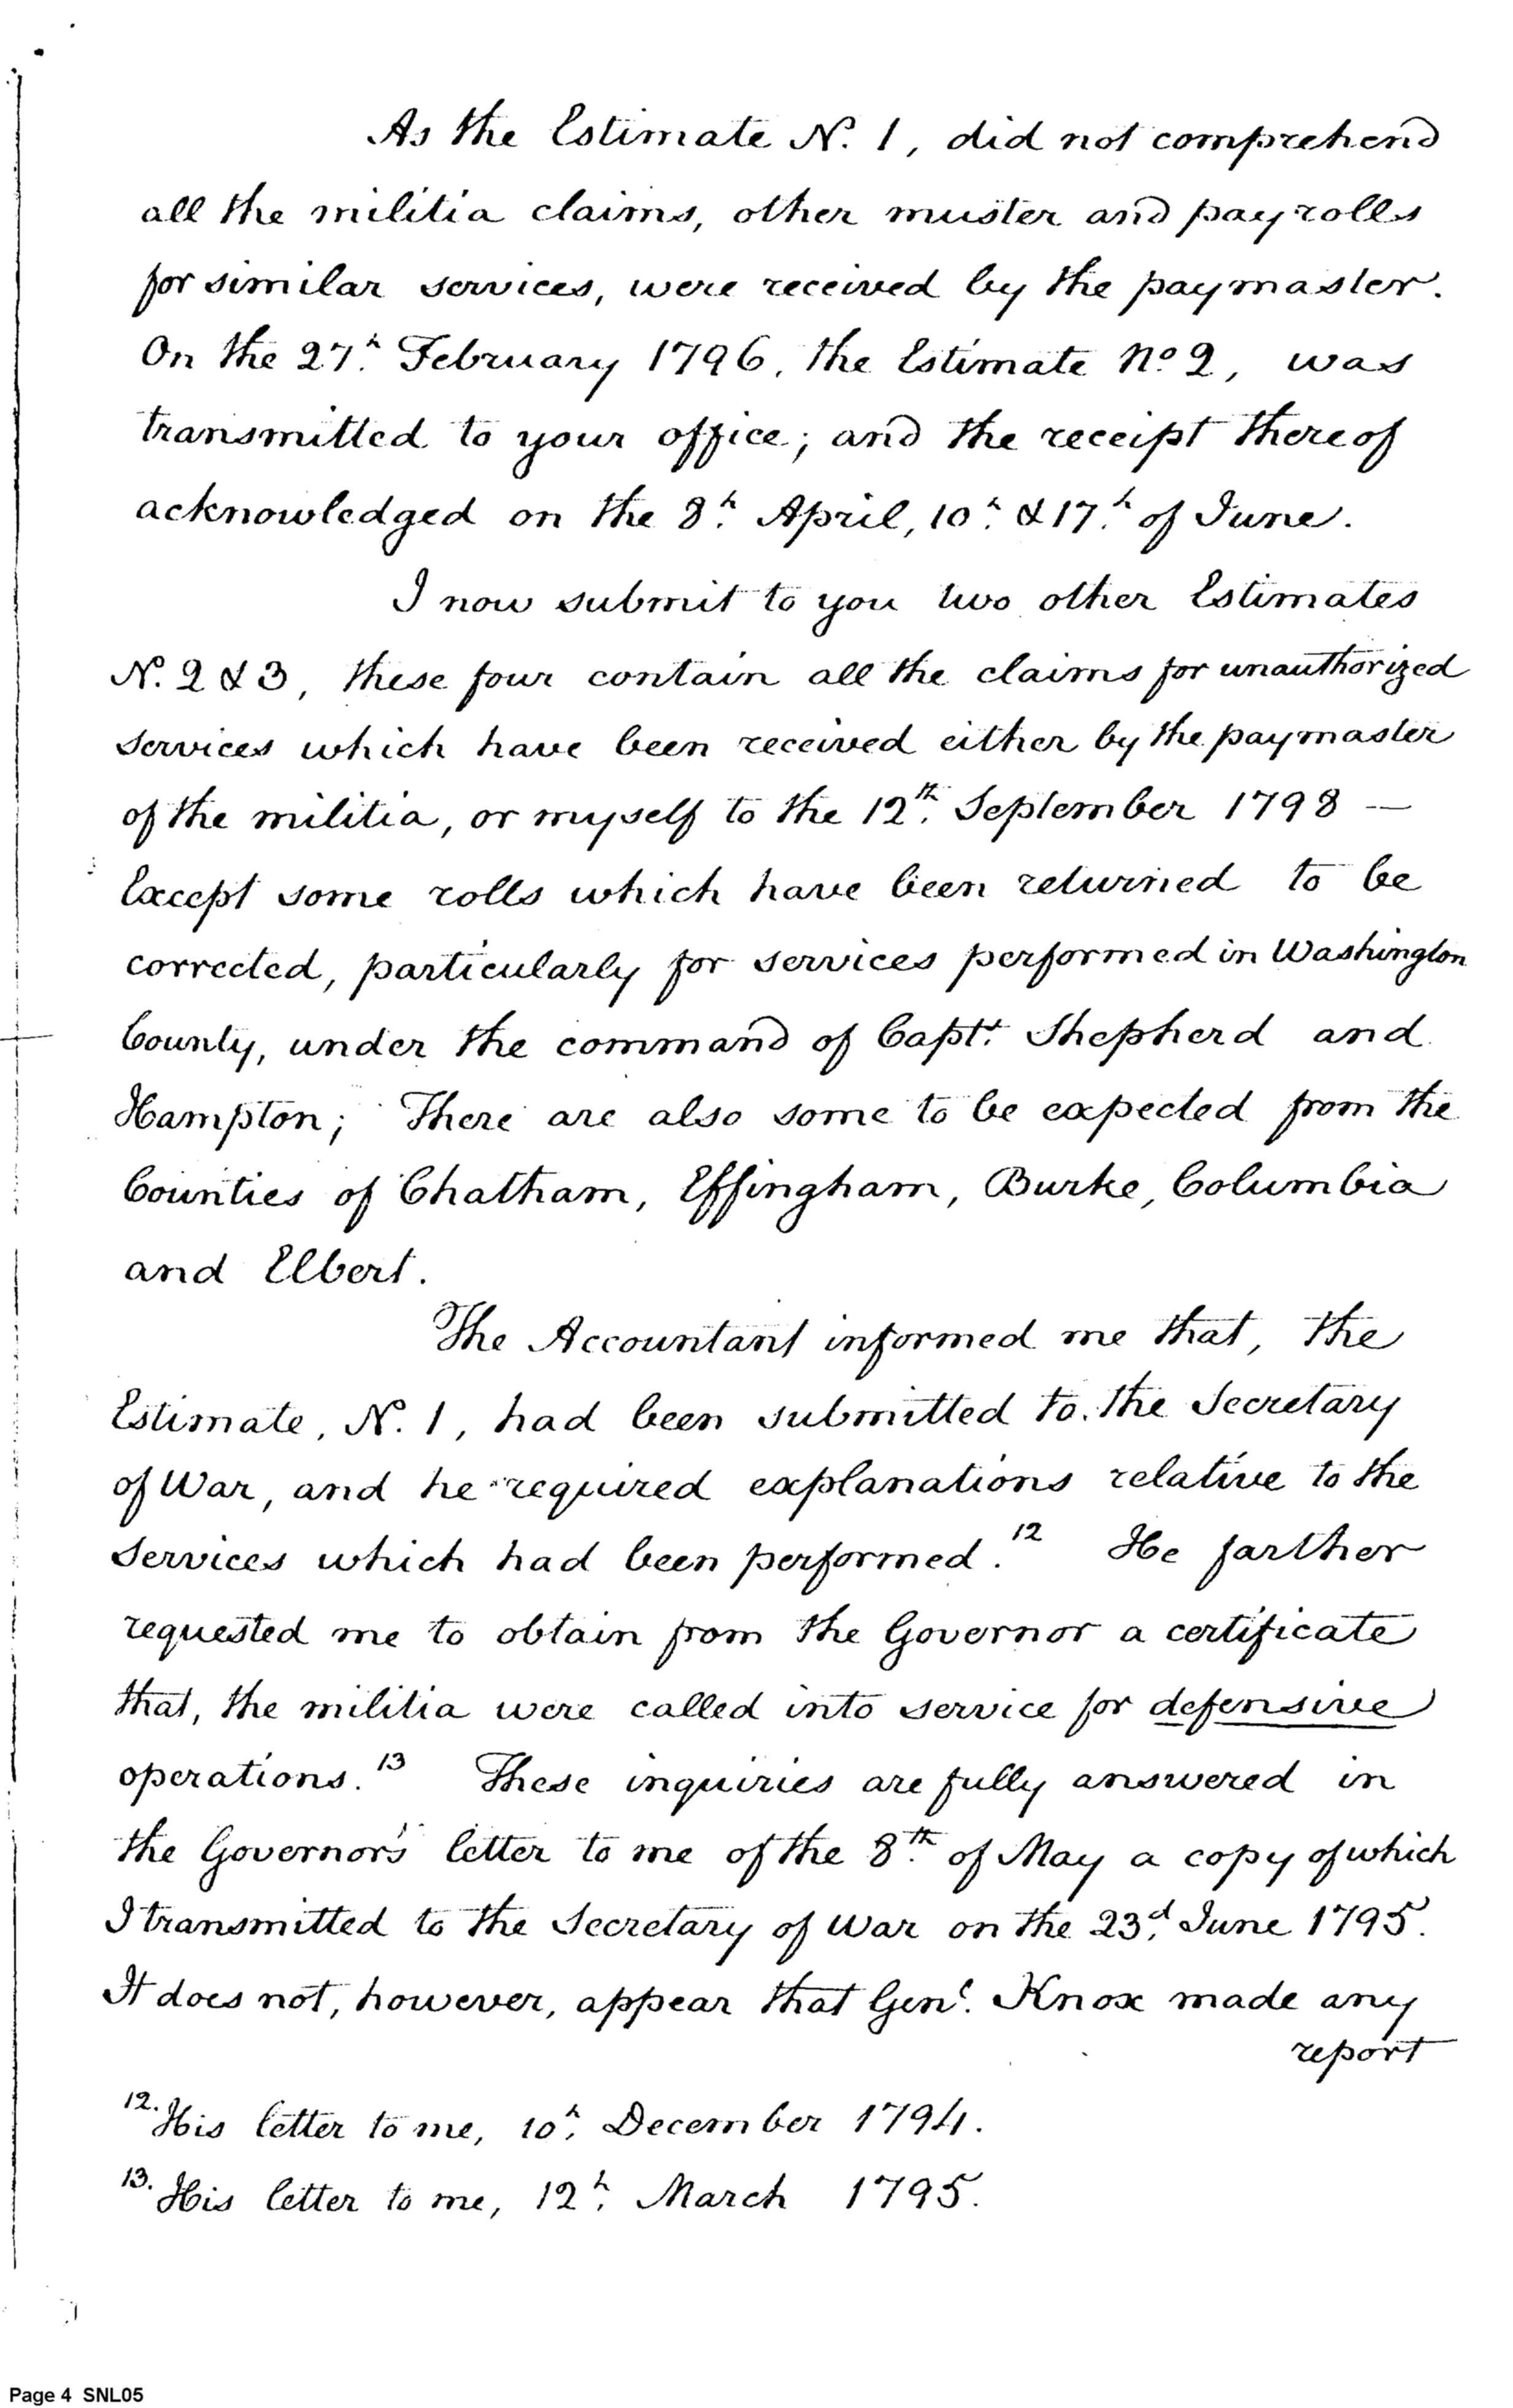 As the Estimate N. 1, did not comprehend
all the militia claims, other muster and pay rolls
for similar services, were received by the paymaster.
On the 27.h February 1796, the Estimate No. 2, was
transmitted to your office; and the receipt thereof
acknowledged on the 8.h April, 10.h & 17.h of June.
I now submit to you two other Estimates
N. 2 & 3, these four contain all the claims for unauthorized
services which have been received either by the paymaster
of the militia, or myself to the 12.th September 1798 —
Except some rolls which have been returned to be
corrected, particularly for services performed in Washington
County, under the command of Capt.t Shepherd and
Hampton; There are also some to be expected from the
Counties of Chatham, Effingham, Burke, Columbia
and Elbert.
The Accountant informed me that, the
Estimate, N. 1, had been submitted to the Secretary
of War, and he required explanations relative to the
Services which had been performed.12 He farther
requested me to obtain from the Governor a certificate
that, the militia were called into service for defensive
operations.13 These inquiries are fully answered in
the Governor's letter to me of the 8.th of May a copy of which
I transmitted to the Secretary of War on the 23.d June 1795.
It does not, however, appear that Gen.l Knox made any
report
12. His letter to me, 10.h December 1794.
13. His letter to me, 12.h March 1795.
Page 4 SNL05